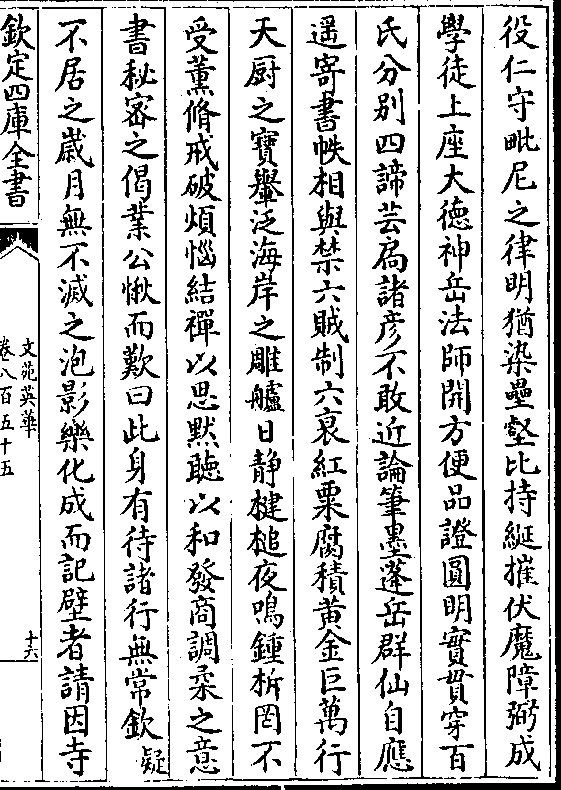 役仁守毗尼之律明猶染壘壑比持綖摧伏魔障弼成
學徒上座大德神岳法師開方便品證圓明實貫穿百
氏分别四諦芸扃諸彦不敢近論筆墨蓬岳群仙自應
遥寄書帙相與禁六賊制六裒紅粟腐積黄金巨萬行
天厨之寶轝泛海岸之雕艫日静楗槌夜鳴鍾柝罔不
受薫脩戒破煩惱結禪以思黙聽以和發商調柔之意
書秘密之偈業公愀而歎曰此身有待諸行無常欽疑
不居之歲月無不滅之泡影樂化成而記壁者請因寺
欽定四庫全書
文苑英華
卷八百五十五
十六